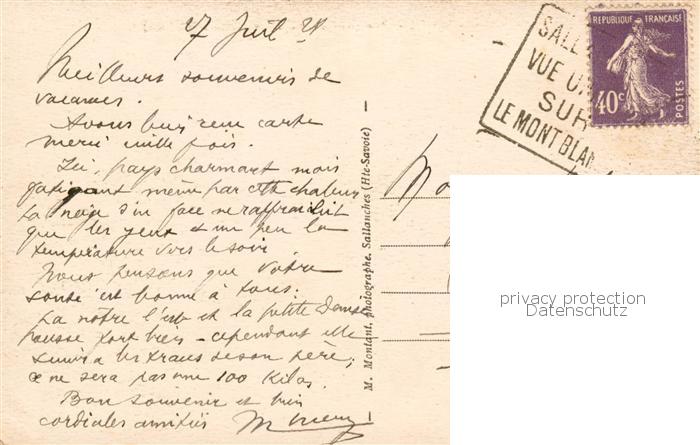 27 Juil 28
Meilleurs souvenirs de
vacances.
Avons reçu carte
merci mille fois.
Ici, pays charmant mais
fatigant même par cette chaleur
La neige d'en face ne rafraichit
que les yeux & un peu la
température vers le soir.
Nous pensons que votre
santé est bonne à tous.
La nôtre l'est et la petite Denise
pousse fort bien - cependant elle
suivra les traces de son père;
ce ne sera pas une 100 kilos.
Bon souvenir et bien
cordiales amitiés
M. Montant, photographe, Sallanches (Hte-Savoie)
SALL
VUE U
SUR
LE MONT BLAN
REPUBLIQUE FRANÇAISE
40c
POSTES
privacy protection
Datenschutz